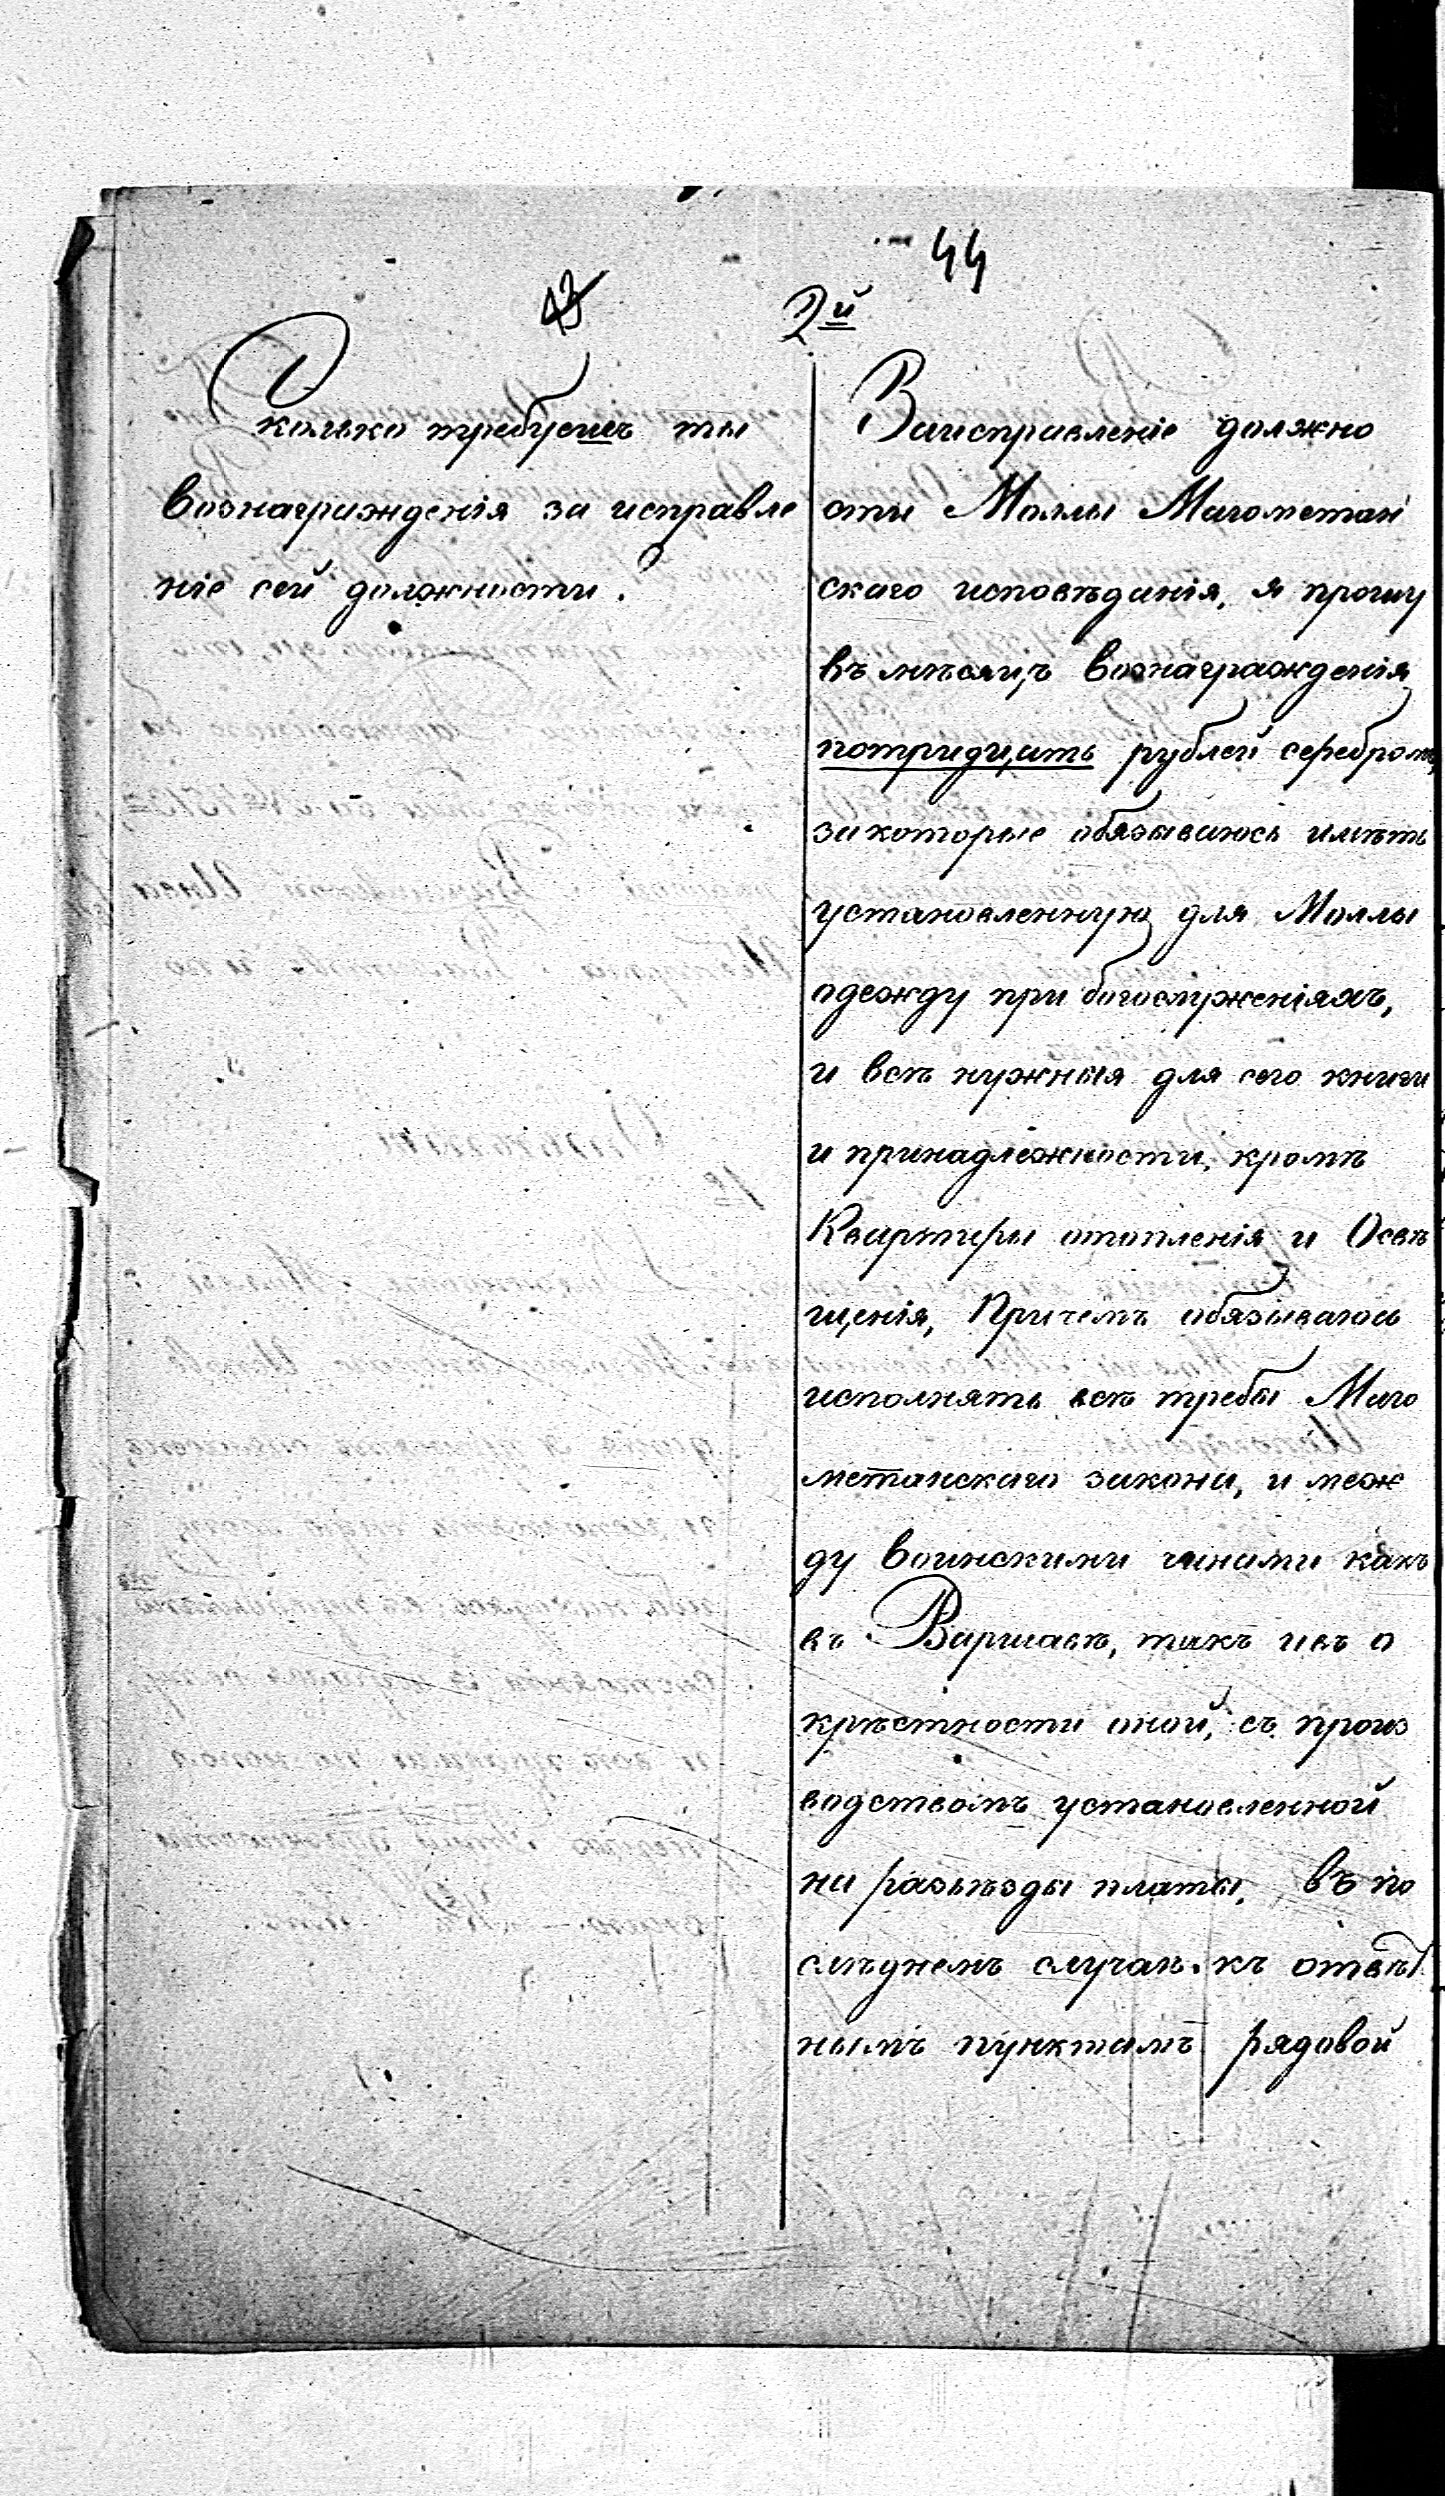 44
43
2й
Сколько требуешъ ты
вознагражденія за исправле
ніе сей должности?
Заисправленіе должно
сти Моллы Магометан
скаго исповѣданія, я прошу
въ мѣсяцъ вознагражденія
потридцать рублей серебромъ,
закоторые обязываюсь имѣть
установленную для Моллы
одежду при богослуженіяхъ,
и всѣ нужныя для сего книги
и принадлежности, кромѣ
Квартиры отопленія и Освѣ
щенія, Причемъ обязываюсь
исполнять всѣ требы Маго
метанскаго закона, и меж
ду воинскими чинами какъ
въ Варшавѣ, такъ ивъ о
крѣстности оной, съ произ
водствомъ установленной
на разъѣзды платы, въ по
слѣднемъ случаѣ. къ отвѣт
нымъ пунктамъ рядовой